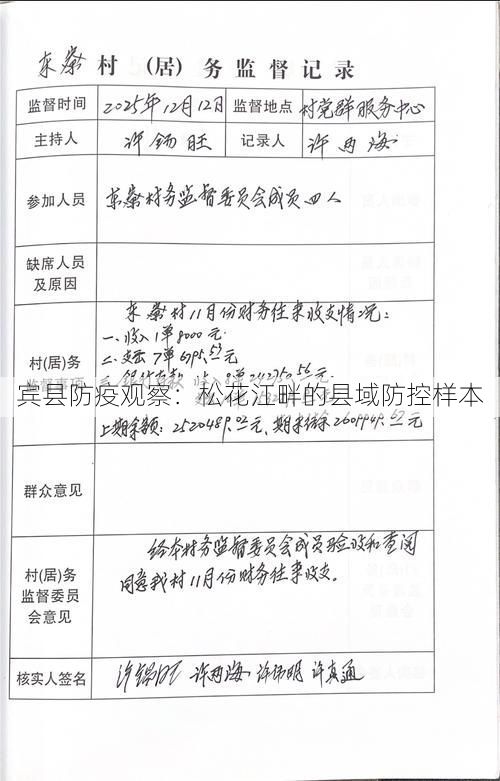 东寮村 (居) 务监督记录
监督时间 2025年12月12日 监督地点 村党群服务中心
主持人 许锡旺 记录人 许两海
参加人员 东寮村务监督委员会成员四人
缺席人员
及原因
东寮村11月份财务往来收支情况:
一、收入1单8000元.
二、支出7单6795.52元
村(居)务
宾县防疫观察:松花江畔的县域防控样本
上期余额:
群众意见
经本村务监督委员会成员验收和查阅
同意我村11月份财务往来收支。
村(居)务
监督委员
会意见
核实人签名 许锡旺 许两海 许真通